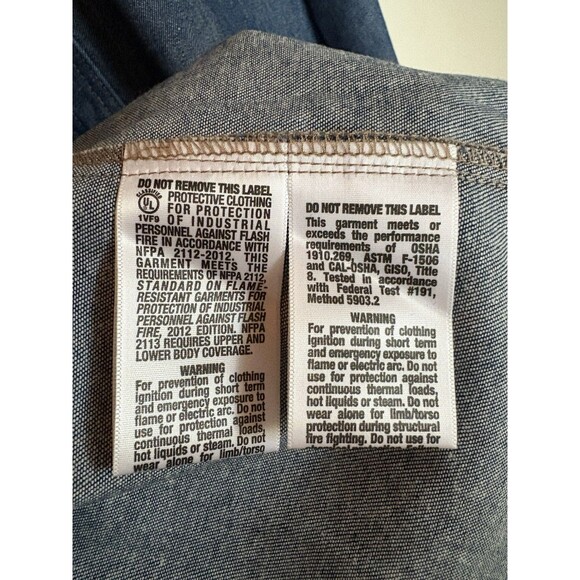 DO NOT REMOVE THIS LABEL
CLASSIFIED
UL
1VF9
PROTECTIVE CLOTHING
FOR PROTECTION
OF INDUSTRIAL
PERSONNEL AGAINST FLASH
FIRE IN ACCORDANCE WITH
NFPA 2112-2012. THIS
GARMENT MEETS THE
REQUIREMENTS OF NFPA 2112,
STANDARD ON FLAME-
RESISTANT GARMENTS FOR
PROTECTION OF INDUSTRIAL
PERSONNEL AGAINST FLASH
FIRE, 2012 EDITION. NFPA
2113 REQUIRES UPPER AND
LOWER BODY COVERAGE.
WARNING
For prevention of clothing
ignition during short term
and emergency exposure to
flame or electric arc. Do not
use for protection against
continuous thermal loads,
hot liquids or steam. Do not
wear alone for limb/torso
DO NOT REMOVE THIS LABEL
This garment meets or
exceeds the performance
requirements of OSHA
1910.269, ASTM F-1506
and CAL-OSHA, GISO, Title
8. Tested in accordance
with Federal Test #191,
Method 5903.2
WARNING
For prevention of clothing
ignition during short term
and emergency exposure to
flame or electric arc. Do not
use for protection against
continuous thermal loads,
hot liquids or steam. Do not
wear alone for limb/torso
protection during structural
fire fighting. Do not use for